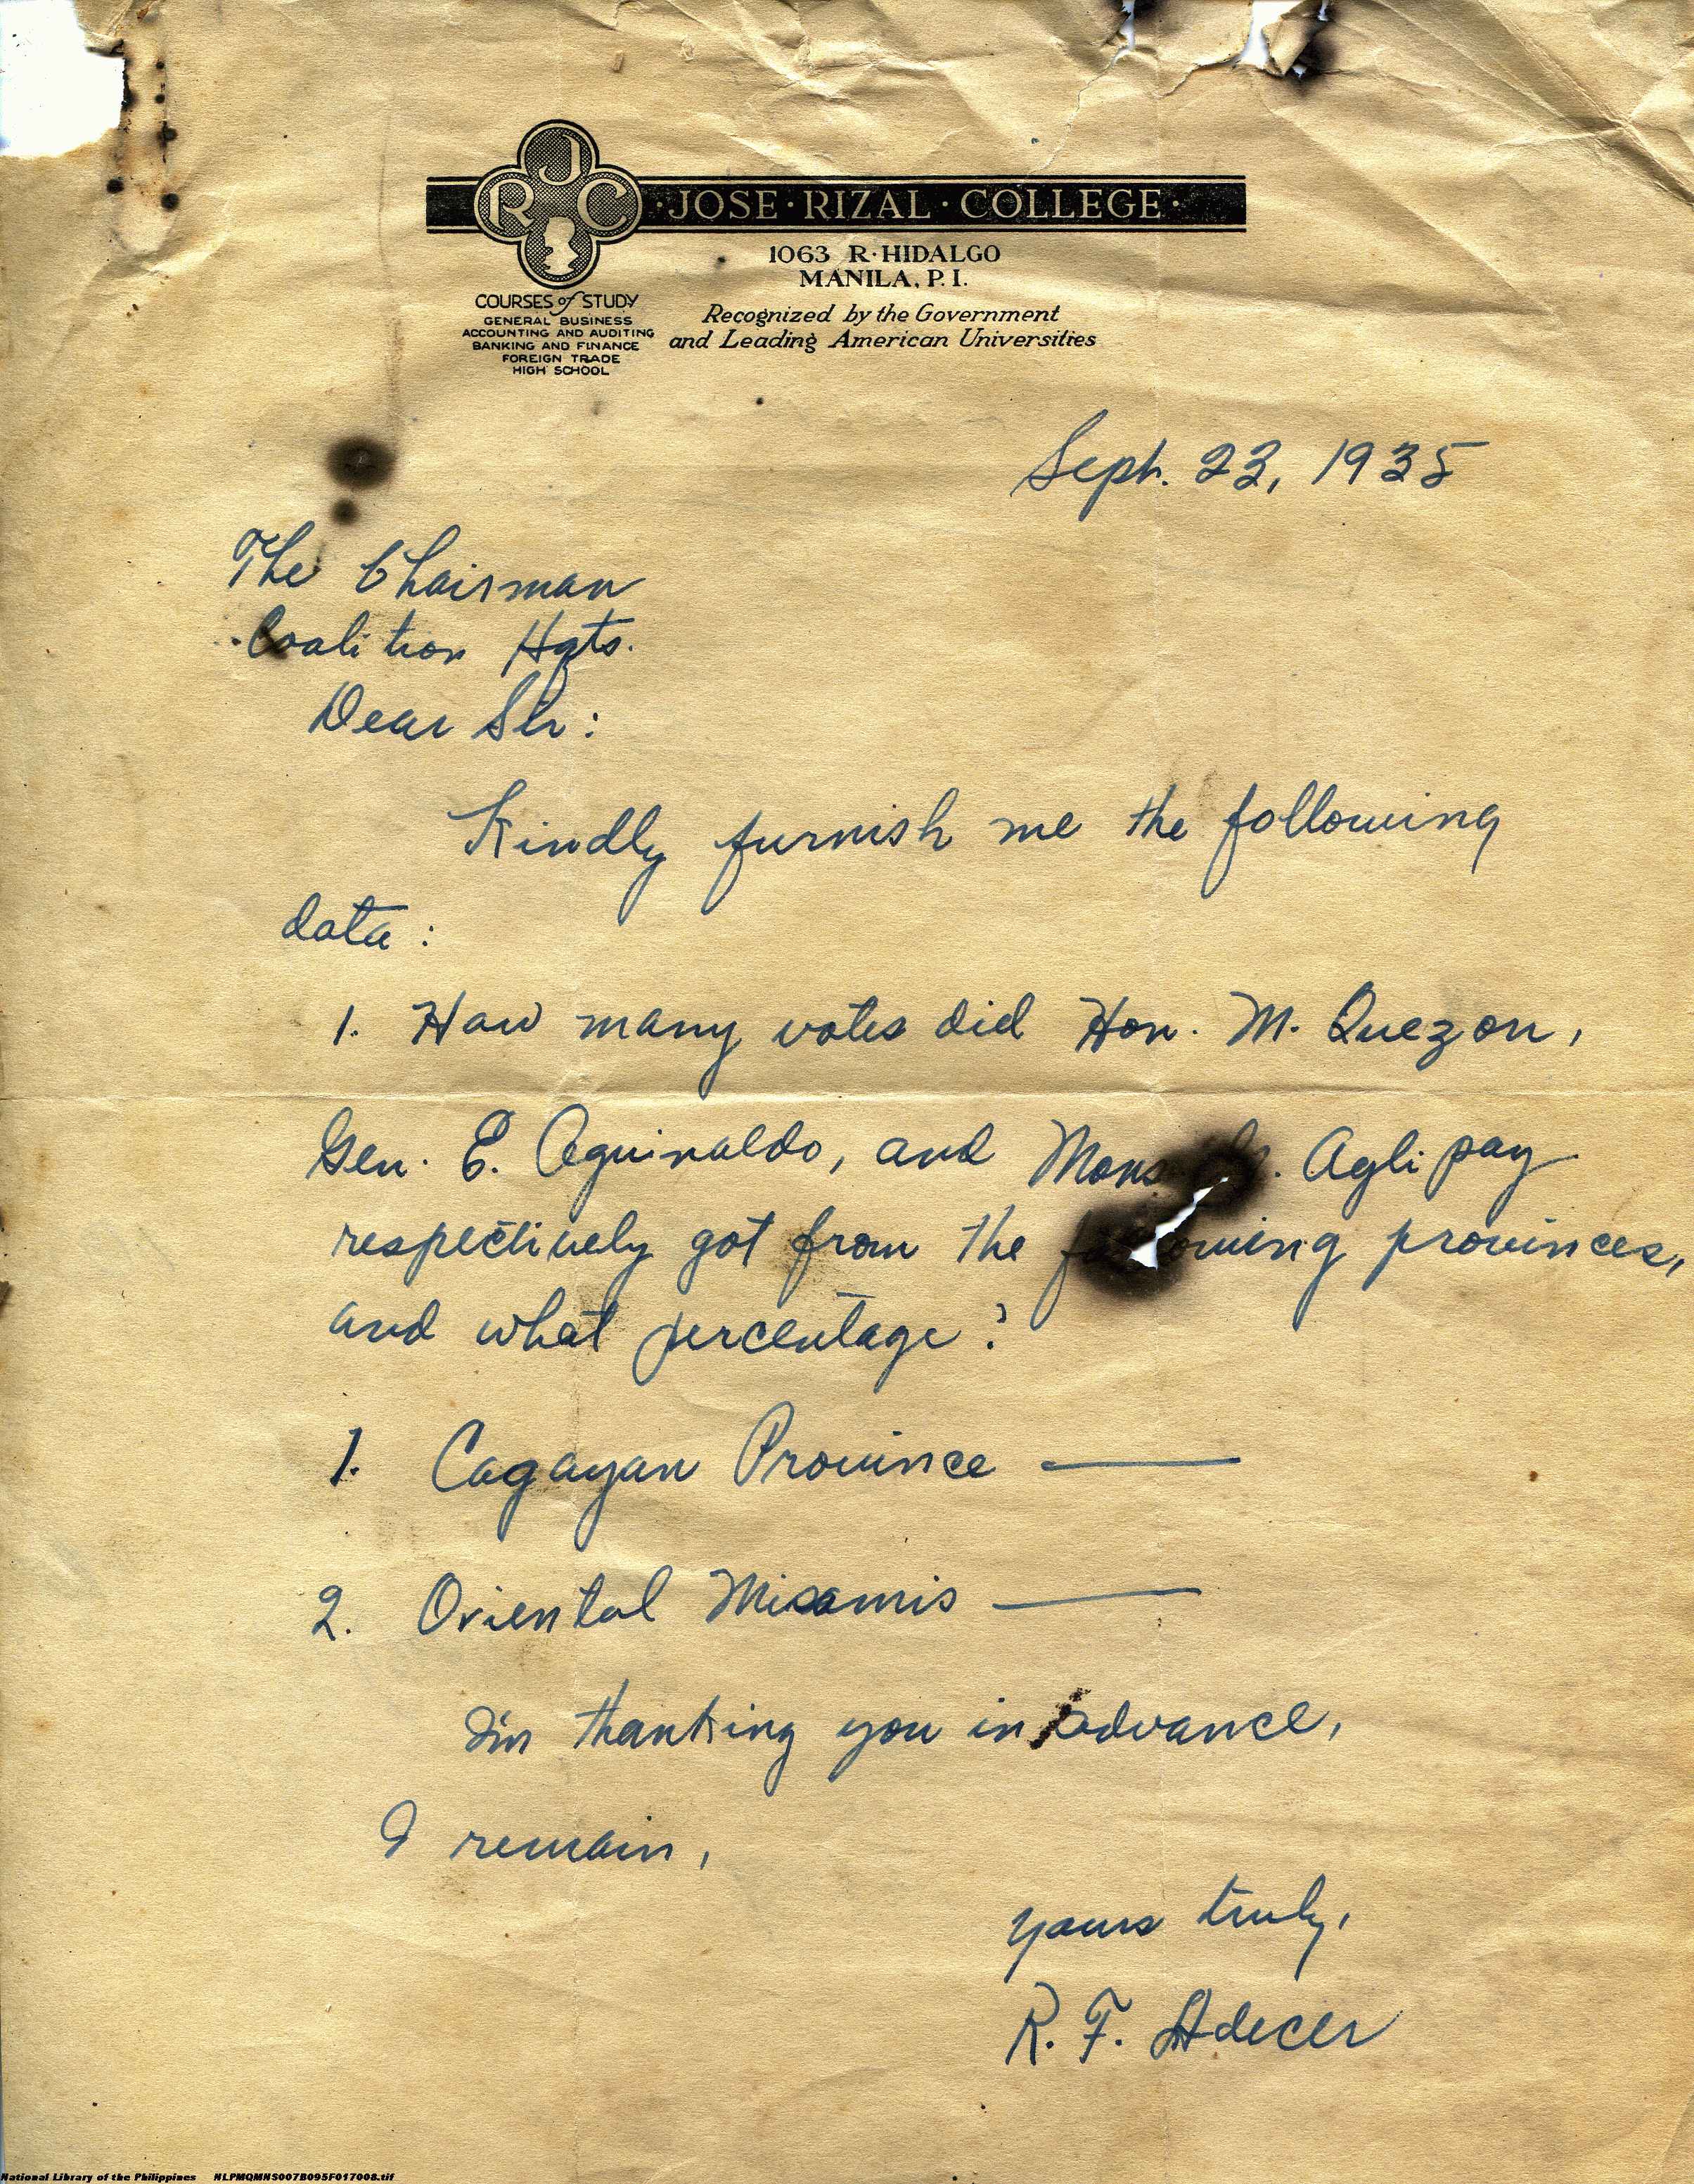 J
R C
· JOSE · RIZAL · COLLEGE ·
1063 R·HIDALGO
MANILA, P. I.
Recognized by the Government
and Leading American Universities
COURSES of STUDY
GENERAL BUSINESS
ACCOUNTING AND AUDITING
BANKING AND FINANCE
FOREIGN TRADE
HIGH SCHOOL
Sept. 23, 1935
The Chairman
Coalition Hqts.
Dear Sir:
Kindly furnish me the following
data:
1. How many votes did Hon. M. Quezon,
Gen. E. Aguinaldo, and Mons. Aglipay
respectively got from the following provinces,
and what percentage?
1. Cagayan Province —
2. Oriental Misamis —
In thanking you in advance,
I remain,
yours truly,
R. F. Adecer
National Library of the Philippines NLPMQMNS007B095F017008.tif